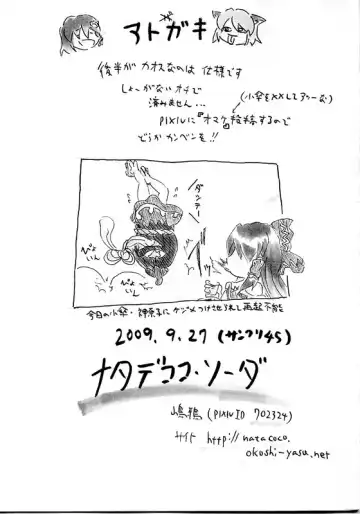 アトガキ
後半がカオスなのは仕様です
しょーがないオチで
済みません…
(小傘を××してアッーな)
PIXIVに『オマケ』投稿するので
どうかカンベンを!!
ダンデー
ぴょいん
ぴょいん
今日の小傘・神奈子にケンジメつけさせられて再起不能
2009.9.27 (サンクリ45)
ナタデココ・ソーダ
嶋鵺 (PIXIV ID 702324)
サイト http://natacoco.
okoshi-yasu.net